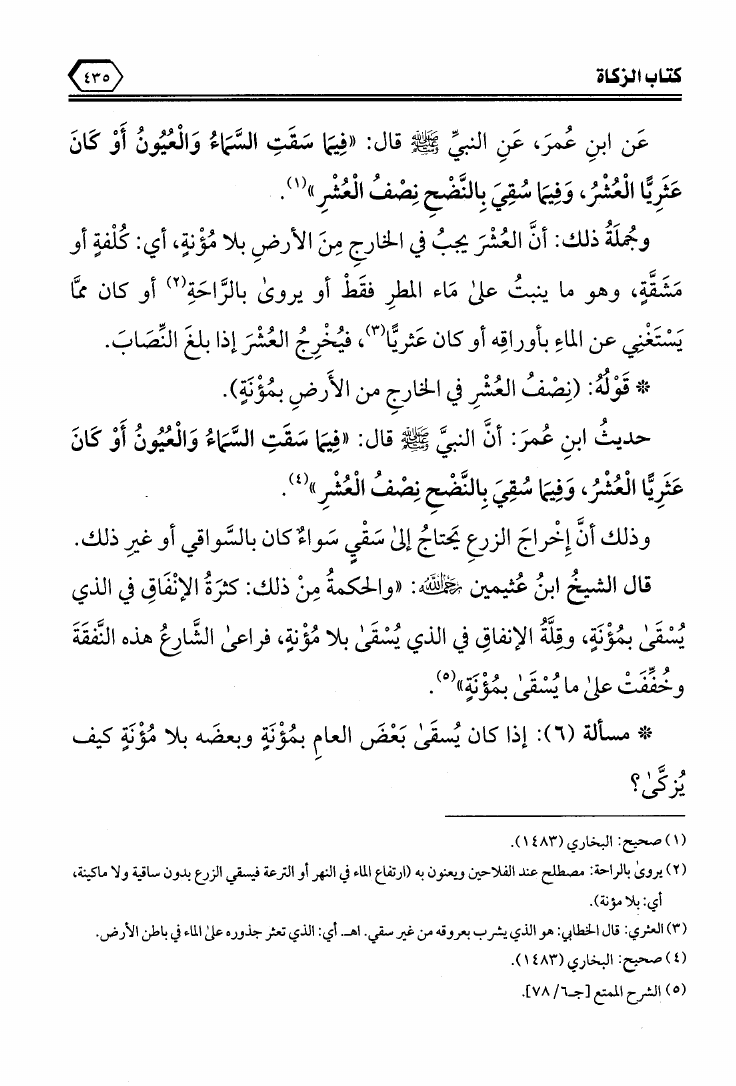 كتاب الزكاة
٤٣٥
عَن ابنِ عُمرَ، عَنِ النبيِّ ﷺ قال: «فِيمَا سَقَتِ السَّمَاءُ وَالْعُيُونُ أَوْ كَانَ
عَثَرِيًّا الْعُشْرُ، وَفِيمَا سُقِيَ بِالنَّضْحِ نِصْفُ الْعُشْرِ»(١).
وجُملَةُ ذلك: أنَّ العُشْرَ يجبُ في الخارجِ مِنَ الأرضِ بلا مُؤْنةٍ، أي: كُلْفةٍ أو
مَشقَّةٍ، وهو ما ينبتُ علىٰ مَاء المطرِ فقَطْ أو يروىٰ بالرَّاحَةِ(٢) أو كان ممَّا
يَسْتَغْنِي عن الماءِ بأوراقِه أو كان عَثريًّا(٣)، فيُخْرِجُ العُشْرَ إذا بلغَ النِّصَابَ.
* قَوْلُهُ: (نِصْفُ العُشْرِ في الخارجِ من الأَرضِ بمُؤْنَةٍ).
حديثُ ابنِ عُمرَ: أنَّ النبيَّ ﷺ قال: «فِيمَا سَقَتِ السَّمَاءُ وَالْعُيُونُ أَوْ كَانَ
عَثَرِيًّا الْعُشْرُ، وَفِيمَا سُقِيَ بِالنَّضْحِ نِصْفُ الْعُشْرِ»(٤).
وذلك أنَّ إِخْراجَ الزرعِ يَحتاجُ إلىٰ سَقْيٍ سَواءٌ كان بالسَّواقي أو غيرِ ذلك.
قال الشيخُ ابنُ عُثيمين رَحِمَهُ اللَّهُ: «والحكمةُ مِنْ ذلك: كثرَةُ الإنْفَاقِ في الذي
يُسْقَىٰ بمُؤْنَةٍ، وقِلَّةُ الإنفاقِ في الذي يُسْقَىٰ بلا مُؤْنةٍ، فراعىٰ الشَّارعُ هذه النَّفقَةَ
وخُفِّفَتْ علىٰ ما يُسْقَىٰ بمُؤْنَةٍ»(٥).
* مسألة (٦): إذا كان يُسقَىٰ بَعْضَ العامِ بمُؤْنَةٍ وبعضَه بلا مُؤْنَةٍ كيف
يُزكَّىٰ؟
(١) صحيح: البخاري (١٤٨٣).
(٢) يروىٰ بالراحة: مصطلح عند الفلاحين ويعنون به (ارتفاع الماء في النهر أو الترعة فيسقي الزرع بدون ساقية ولا ماكينة،
أي: بلا مؤنة).
(٣) العثري: قال الخطابي: هو الذي يشرب بعروقه من غير سقي. اهـ. أي: الذي تعثر جذوره علىٰ الماء في باطن الأرض.
(٤) صحيح: البخاري (١٤٨٣).
(٥) الشرح الممتع [جـ٦/ ٧٨].